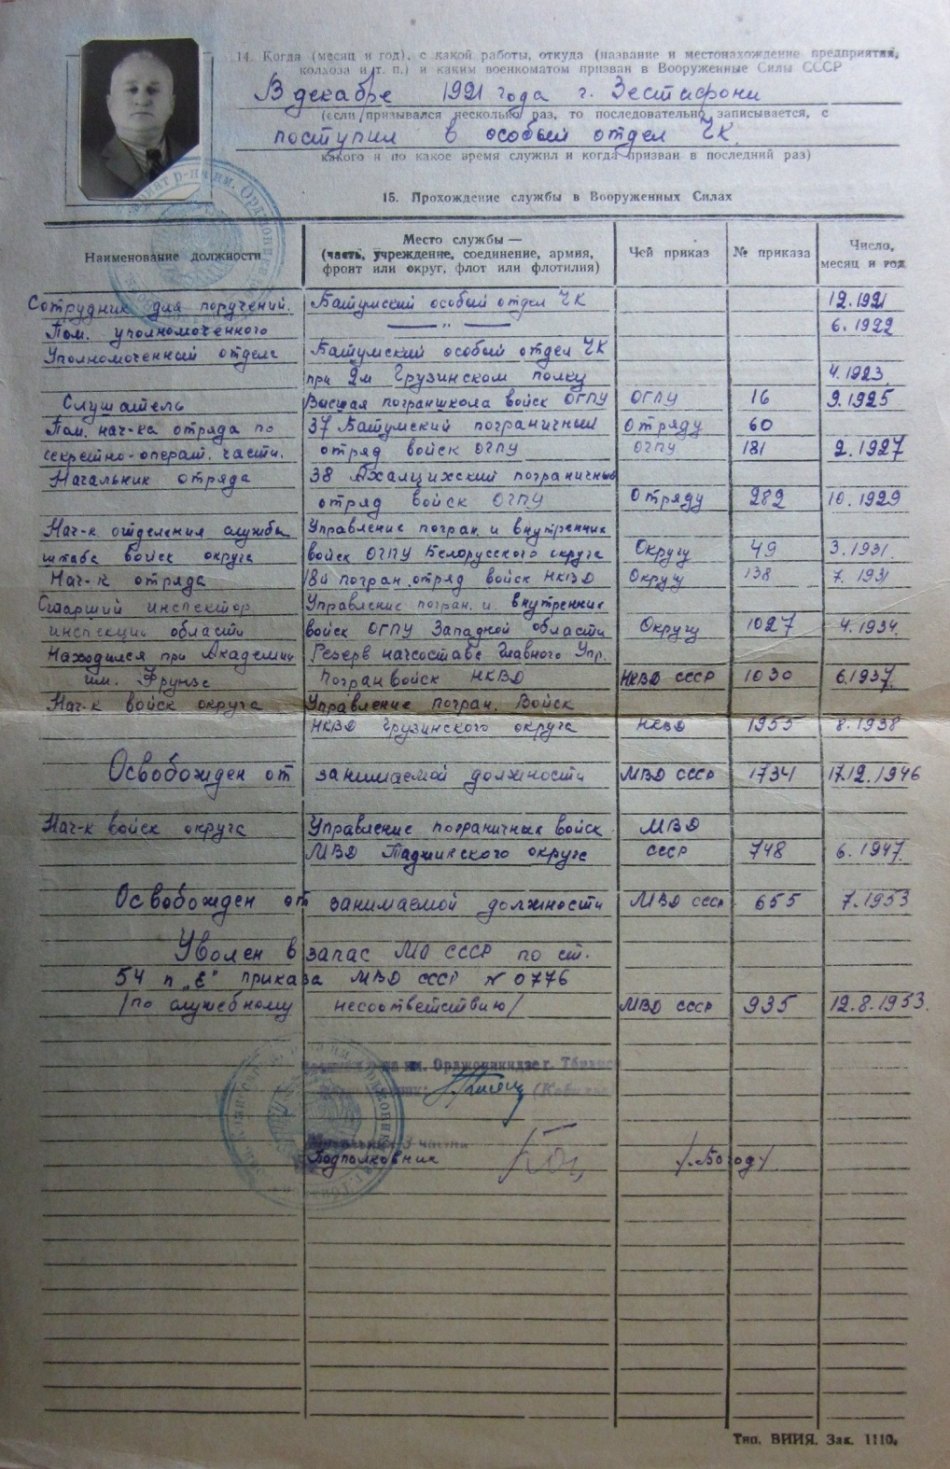 14. Когда (месяц и год), с какой работы, откуда (название и местонахождение предприятия,
колхоза и т. п.) и каким военкоматом призван в Вооруженные Силы СССР
В декабре 1921 года г. Зестафони
(если призывался несколько раз, то последовательно записывается, с
поступил в особый отдел ЧК.
какого и по какое время служил и когда призван в последний раз)
15. Прохождение службы в Вооруженных Силах
Наименование должности Место службы — (часть, учреждение, соединение, армия, фронт или округ, флот или флотилия) Чей приказ № приказа Число, месяц и год
Сотрудник для поручений. Батумский особый отдел ЧК 12.1921
Пом. уполномоченного — „ — 6.1922
Уполномоченный отдела Батумский особый отдел ЧК
при 2м Грузинском полку 4.1923
Слушатель Высшая пограншкола войск ОГПУ ОГПУ 16 9.1925
Пом. нач-ка отряда по 37 Батумский пограничный Отряду 60
секретно-операт. части. отряд войск ОГПУ ОГПУ 181 2.1927
Начальник отряда 38 Ахалцихский пограничный
отряд войск ОГПУ Отряду 282 10.1929
Нач-к отделения службы Управление погран. и внутренних
штаба войск округа войск ОГПУ Белорусского округа Округу 49 3.1931.
Нач-к отряда 18й погран. отряд войск НКВД Округу 138 7.1931
Старший инспектор Управление погран. и внутренних
инспекции области войск ОГПУ Западной области Округу 1027 4.1934.
Находился при Академии Резерв начсостава Главного Упр.
им. Фрунзе Погран войск НКВД НКВД СССР 1030 6.1937.
Нач-к войск округа Управление погран. Войск
НКВД Грузинского округа НКВД 1955 8.1938
Освобожден от занимаемой должности МВД СССР 1734 17.12.1946
Нач-к войск округа Управление пограничных войск МВД
МВД Таджикского округа СССР 748 6.1947.
Освобожден от занимаемой должности МВД СССР 655 7.1953
Уволен в запас МО СССР по ст.
54 п „Е" приказа МВД СССР N 0776
/по служебному несоответствию/ МВД СССР 935 12.8.1953.
им. Орджоникидзе г. Тбилиси
части
Подполковник
Тип. ВИИЯ. Зак. 1110.